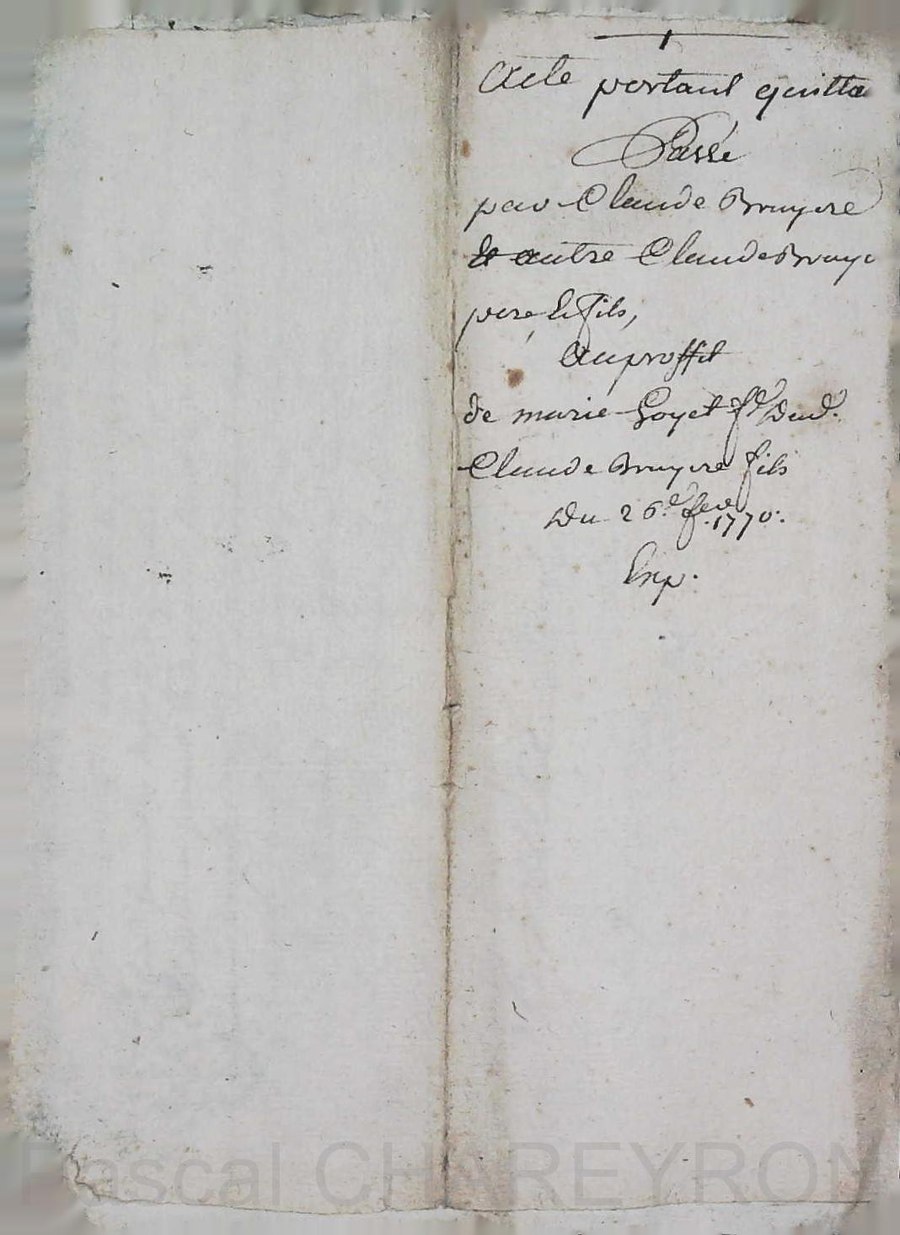 Acte portant quitta
Passé
par Claude Bruyere
& autre Claude Bruye
pere & fils,
Au proffit
de marie Goyet f.e Dud.
Claude Bruyere fils
Du 26.e fev. 1770.
Exp.
Pascal CHAREYRON